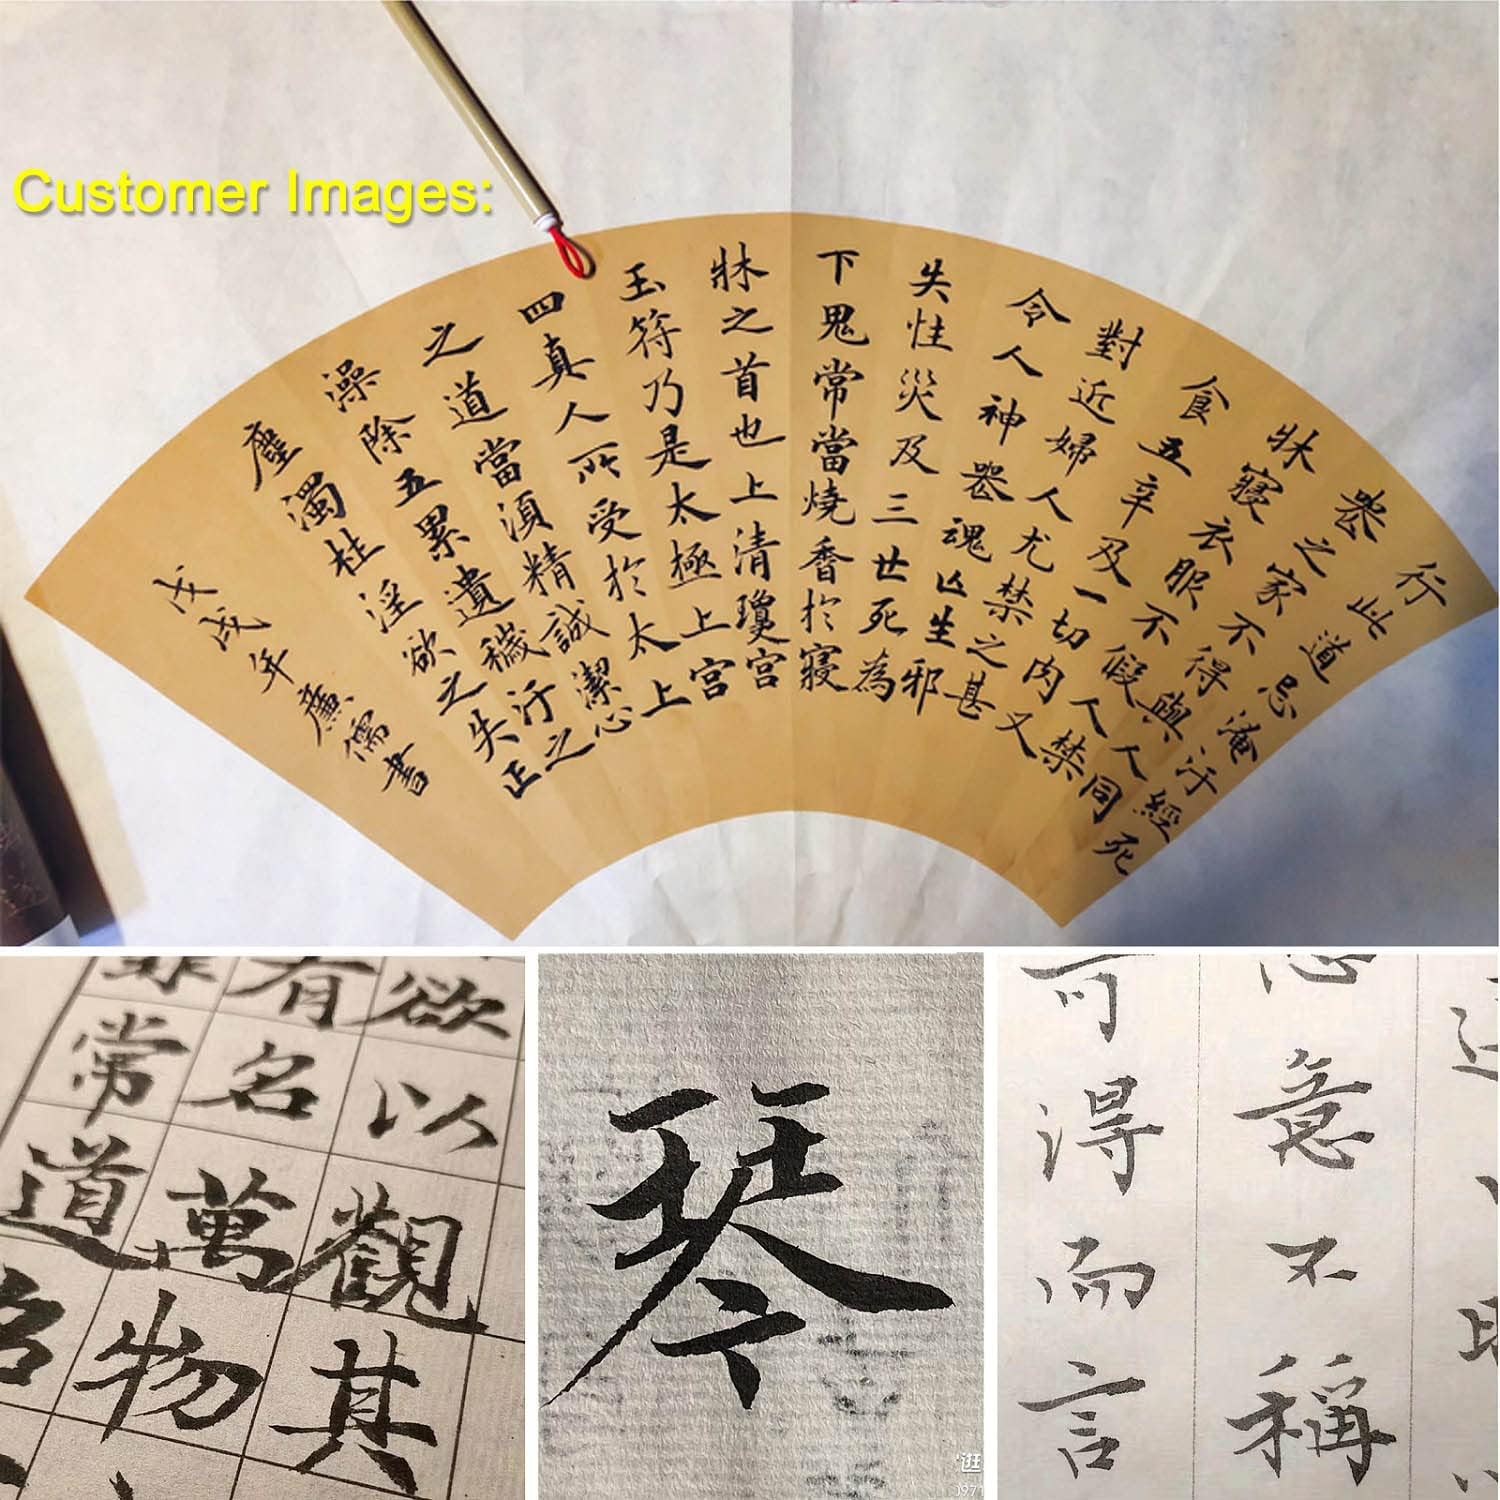 Customer Images:
行此道忌淹汙經死
喪之家不得與人同
牀寢衣服不假人禁
食五辛及一切肉又
對近婦人尤禁之甚
令人神喪魂亡生邪
失性災及三世死為
下鬼常當燒香於寢
牀之首也上清瓊宮
玉符乃是太極上宮
四真人所受於太上
之道當須精誠潔心
澡除五累遺穢汙之
塵濁杜淫欲之失正
戊戌年廉儒書
欲以觀其
有名萬物
非常道名
琴
逛
意不稱
可得而言